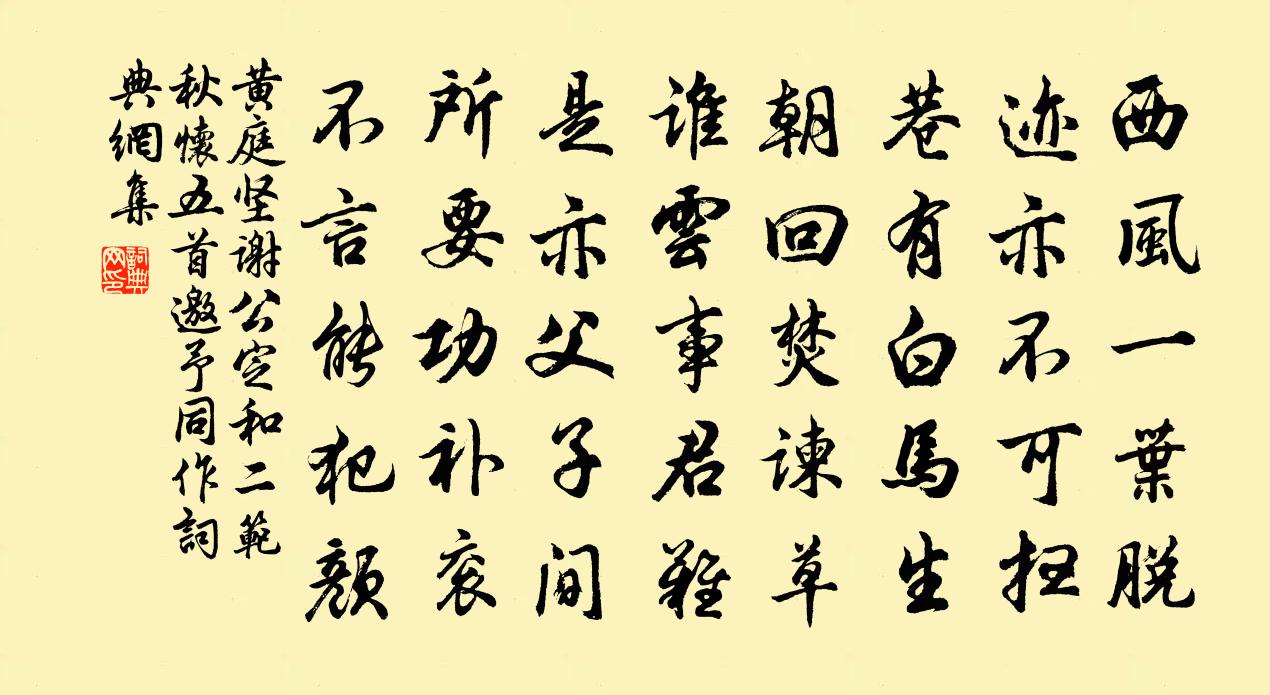 西風一葉脱
迹亦不可扫
巷有白馬生
朝回焚谏草
谁雲事君難
是亦父子间
所要功补衮
不言能犯顔
黄庭坚谢公定和二範
秋懷五首邀予同作詞
典網集
詞典
网印